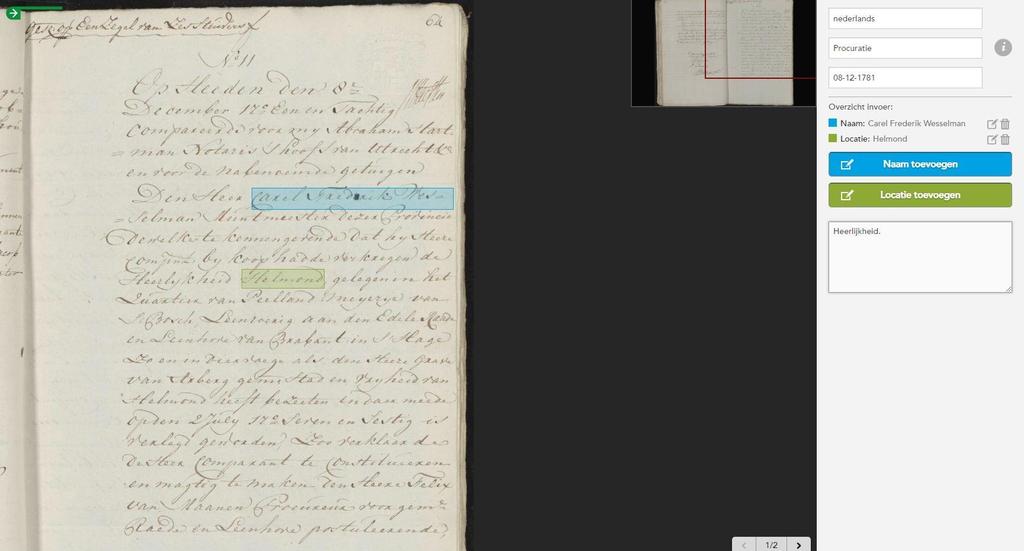 Gesz: op Een Zegel van Zes Stuivers
62
N:o 11
Op Heeden den 8e
December 17c Een en Tachtig
Compareerde voor my Abraham Hart-
=man Notaris 's hoofs van Utrecht &c
en voor de nabenoemde getuigen
Den Heer Carel Fredrik Wes-
=selman Muntmeester dezer Provincie
Dewelke te kennen gevende dat hy Heere
Compt. by koop hadde verkregen de
Heerlykheid Helmond, gelegen in het
Quartier van Peelland Meyerye van
's Bosch, Leenroerig aan den Edele Raade
en Leenhove van Brabant in 's Hage
Zo en in dier voege als den Heere Grave
van Arberg gemte Stad en Vryheid van
Helmond heeft bezeten en daar mede
op den 2 July 17c Seven en Sestig is
verlegd geworden, Zoo verklaarde
De Heer Comparant te Constitueeren
en magtig te maken den Heere Felix
van Maanen Procureur voor gemte
Raede en Leenhove postuleerende,
nederlands
Procuratie
08-12-1781
Overzicht invoer:
Naam: Carel Frederik Wesselman
Locatie: Helmond
Naam toevoegen
Locatie toevoegen
Heerlijkheid.
1/2